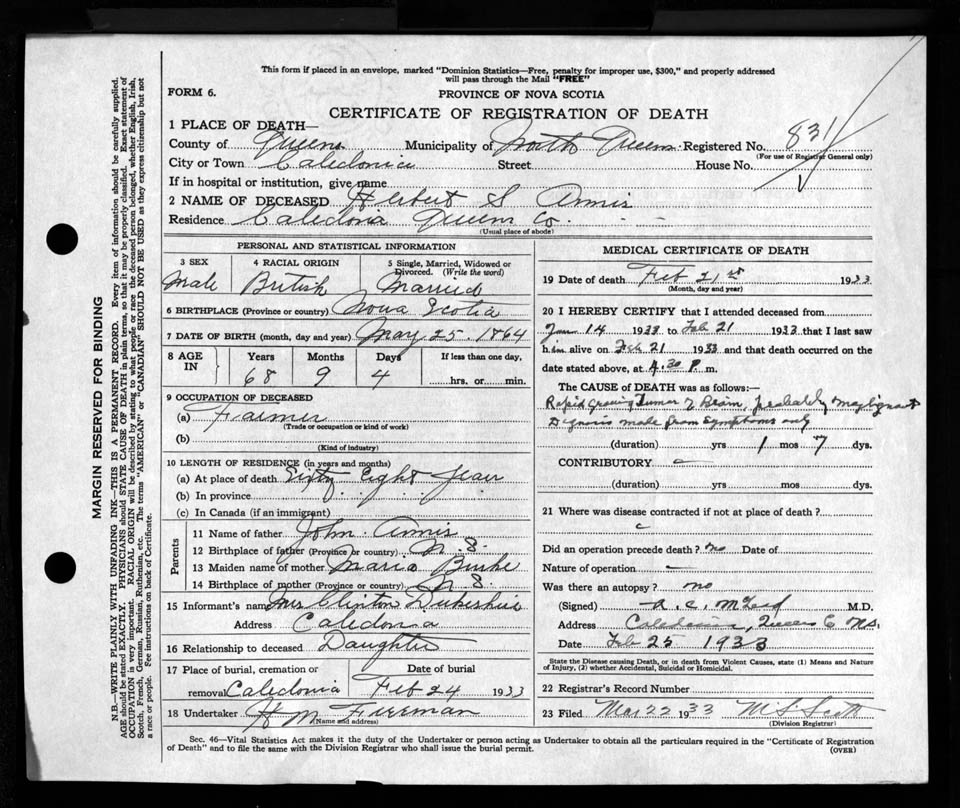 This form if placed in an envelope, marked "Dominion Statistics—Free, penalty for improper use, $300," and properly addressed
will pass through the Mail "FREE"
FORM 6.
PROVINCE OF NOVA SCOTIA
CERTIFICATE OF REGISTRATION OF DEATH
1 PLACE OF DEATH—
County of Queens Municipality of North Queens Registered No. 831
(For use of Registrar General only)
City or Town Caledonia Street House No.
If in hospital or institution, give name
2 NAME OF DECEASED Herbert S Annis
Residence Caledonia Queens Co.
(Usual place of abode)
PERSONAL AND STATISTICAL INFORMATION
3 SEX 4 RACIAL ORIGIN 5 Single, Married, Widowed or
Divorced. (Write the word)
Male British Married
6 BIRTHPLACE (Province or country) Nova Scotia
7 DATE OF BIRTH (month, day and year) May 25. 1864
8 AGE IN Years Months Days If less than one day,
68 9 4 hrs. or min.
9 OCCUPATION OF DECEASED
(a) Farmer
(Trade or occupation or kind of work)
(b)
(Kind of industry)
10 LENGTH OF RESIDENCE (in years and months)
(a) At place of death Sixty Eight Years
(b) In province
(c) In Canada (if an immigrant)
Parents
11 Name of father John Annis
12 Birthplace of father (Province or country) N. S.
13 Maiden name of mother Maria Burke
14 Birthplace of mother (Province or country) N S.
15 Informant's name Mrs Clinton
Address Caledonia
16 Relationship to deceased Daughter
17 Place of burial, cremation or Date of burial
removal Caledonia Feb 24 1933
18 Undertaker H M Freeman
(Name and address)
MEDICAL CERTIFICATE OF DEATH
19 Date of death Feb 21st 1933
(Month, day and year)
20 I HEREBY CERTIFY that I attended deceased from
Jan 14 1933 to Feb 21 1933 that I last saw
him alive on Feb 21 1933 and that death occurred on the
date stated above, at 4.30 P. m.
The CAUSE OF DEATH was as follows:
Rapid growing Tumor of Brain, probably Malignant
Diagnosis made from symptoms only
(duration) yrs 1 mos 7 dys.
CONTRIBUTORY
(duration) yrs mos dys.
21 Where was disease contracted if not at place of death?
Did an operation precede death? no Date of
Nature of operation —
Was there an autopsy? no
(Signed) M.D.
Address Caledonia, Queens Co N.S.
Date Feb 25 1933
State the Disease causing Death, or in death from Violent Causes, state (1) Means and Nature
of Injury, (2) whether Accidental, Suicidal or Homicidal.
22 Registrar's Record Number
23 Filed Mar 22 1933 M S Scott
(Division Registrar)
Sec. 46—Vital Statistics Act makes it the duty of the Undertaker or person acting as Undertaker to obtain all the particulars required in the "Certificate of Registration
of Death" and to file the same with the Division Registrar who shall issue the burial permit.
(OVER)
MARGIN RESERVED FOR BINDING
N.B.—WRITE PLAINLY WITH UNFADING INK—THIS IS A PERMANENT RECORD. Every item of information should be carefully supplied.
AGE should be stated EXACTLY. PHYSICIANS should STATE CAUSE OF DEATH in plain terms, so that it may be properly classified. Exact statement of
OCCUPATION is very important. RACIAL ORIGIN will be described by stating to what people or race the deceased person belonged, whether English, Irish,
Scotch, French, German, Russian, Ruthenian, etc. The terms "AMERICAN" or "CANADIAN" SHOULD NOT BE USED as they express citizenship but not
a race or people. Fee instructions on back of Certificate.